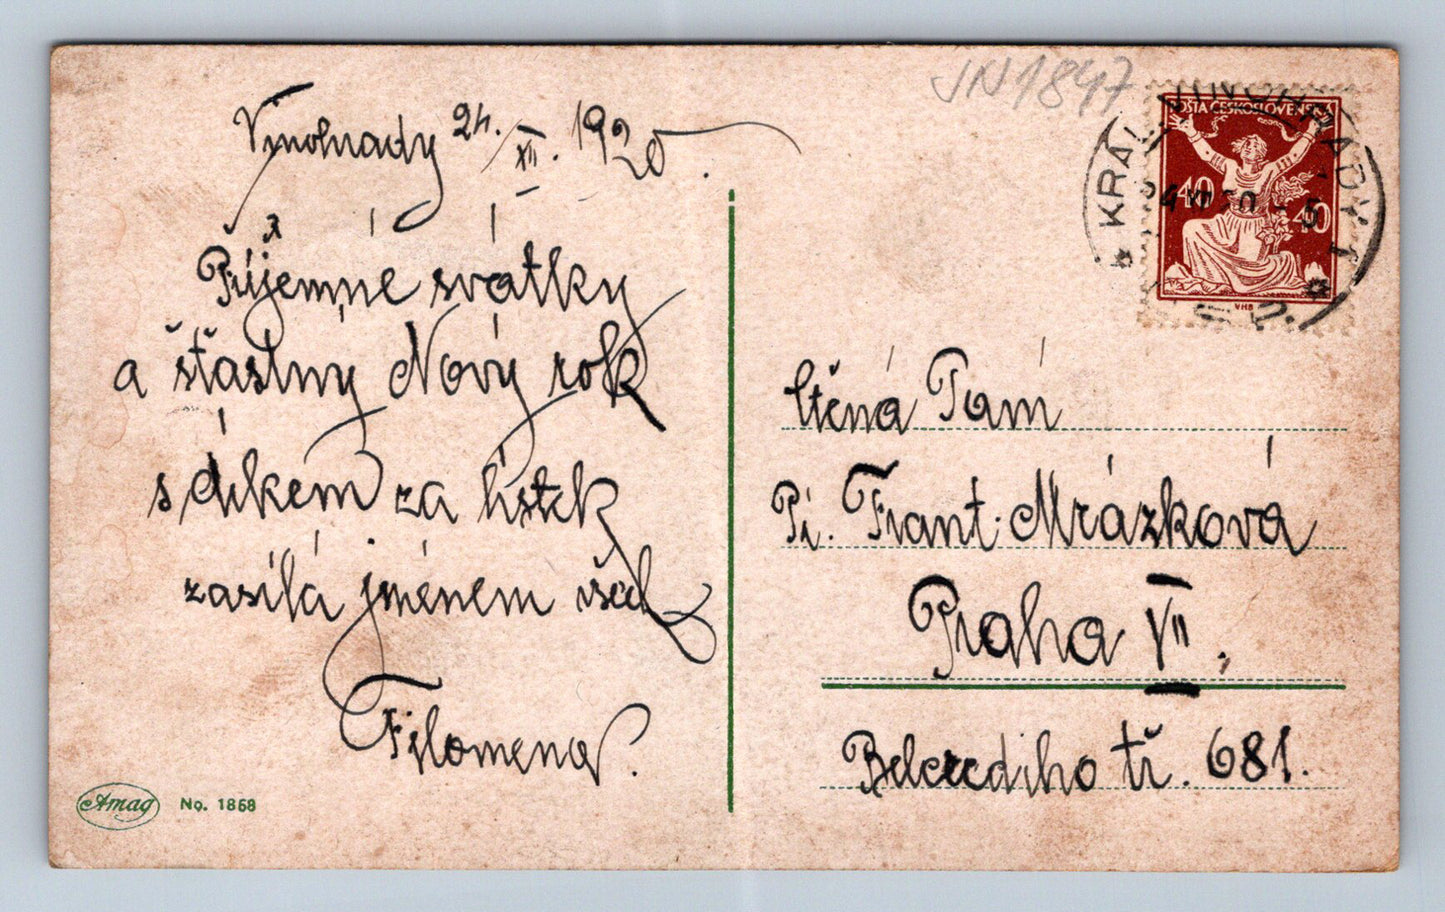 Vinohrady 24. XII. 1920.
Příjemné svátky
a šťastný Nový rok
s díkem za lístek
zasílá jménem všech
Filomena.
Amag No. 1868
JN1847
POŠTA ČESKOSLOVENSKÁ
40 40
VHB
KRÁL. VINOHRADY 1
24 XII 20 - 5
Ctěná Paní
Pí. Frant. Mrázková
Praha VII.
Belcrediho tř. 681.